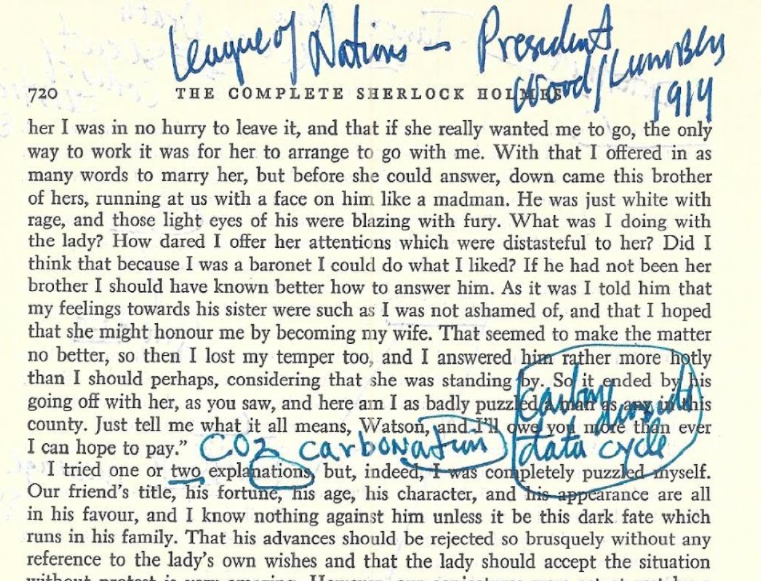 League of Nations - President
Wood/
1914
720 THE COMPLETE SHERLOCK HOLMES
her I was in no hurry to leave it, and that if she really wanted me to go, the only
way to work it was for her to arrange to go with me. With that I offered in as
many words to marry her, but before she could answer, down came this brother
of hers, running at us with a face on him like a madman. He was just white with
rage, and those light eyes of his were blazing with fury. What was I doing with
the lady? How dared I offer her attentions which were distasteful to her? Did I
think that because I was a baronet I could do what I liked? If he had not been her
brother I should have known better how to answer him. As it was I told him that
my feelings towards his sister were such as I was not ashamed of, and that I hoped
that she might honour me by becoming my wife. That seemed to make the matter
no better, so then I lost my temper too, and I answered him rather more hotly
than I should perhaps, considering that she was standing by. So it ended by his
going off with her, as you saw, and here am I as badly puzzled a man as any in this
county. Just tell me what it all means, Watson, and I'll owe you more than ever
I can hope to pay."
CO2 carbonation
carbon
data cycle
I tried one or two explanations, but, indeed, I was completely puzzled myself.
Our friend's title, his fortune, his age, his character, and his appearance are all
in his favour, and I know nothing against him unless it be this dark fate which
runs in his family. That his advances should be rejected so brusquely without any
reference to the lady's own wishes and that the lady should accept the situation